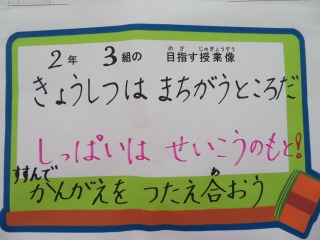 2年 3組の 目指す授業像
きょうしつは まちがうところだ
しっぱいは せいこうのもと!
すすんで
かんがえを つたえ合おう